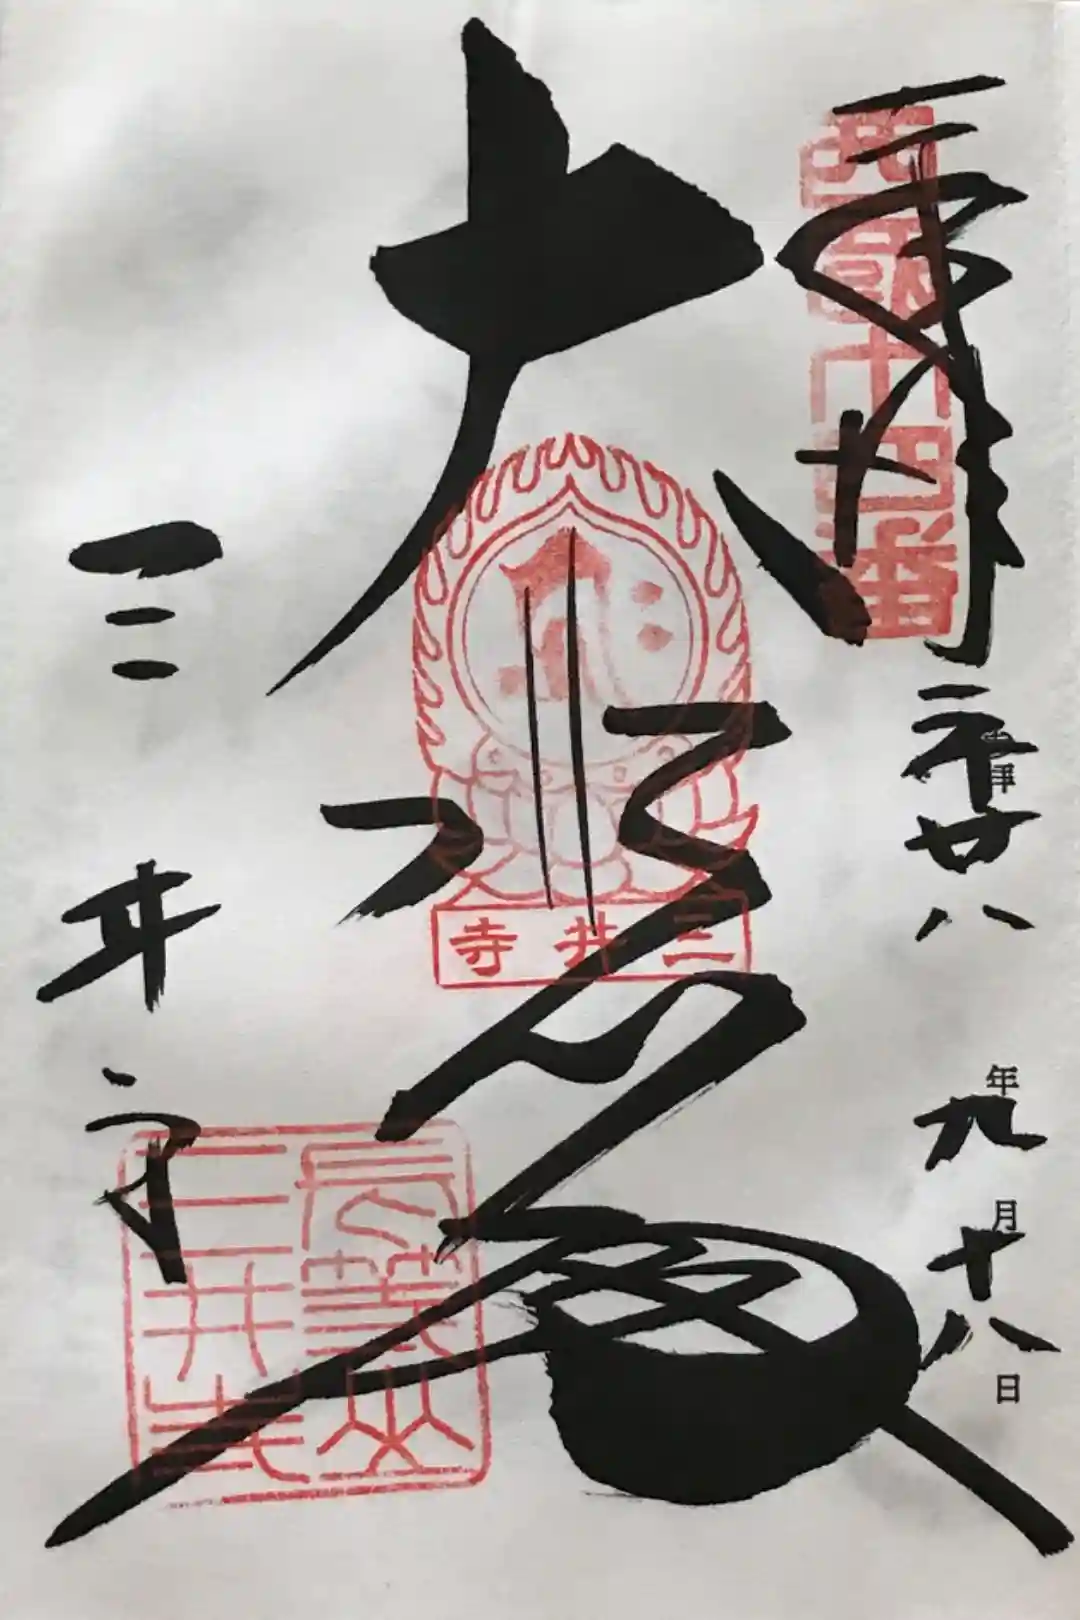 奉拝
西國十四番
平成廿八年九月十八日
大悲殿
三井寺
三井寺
三井寺